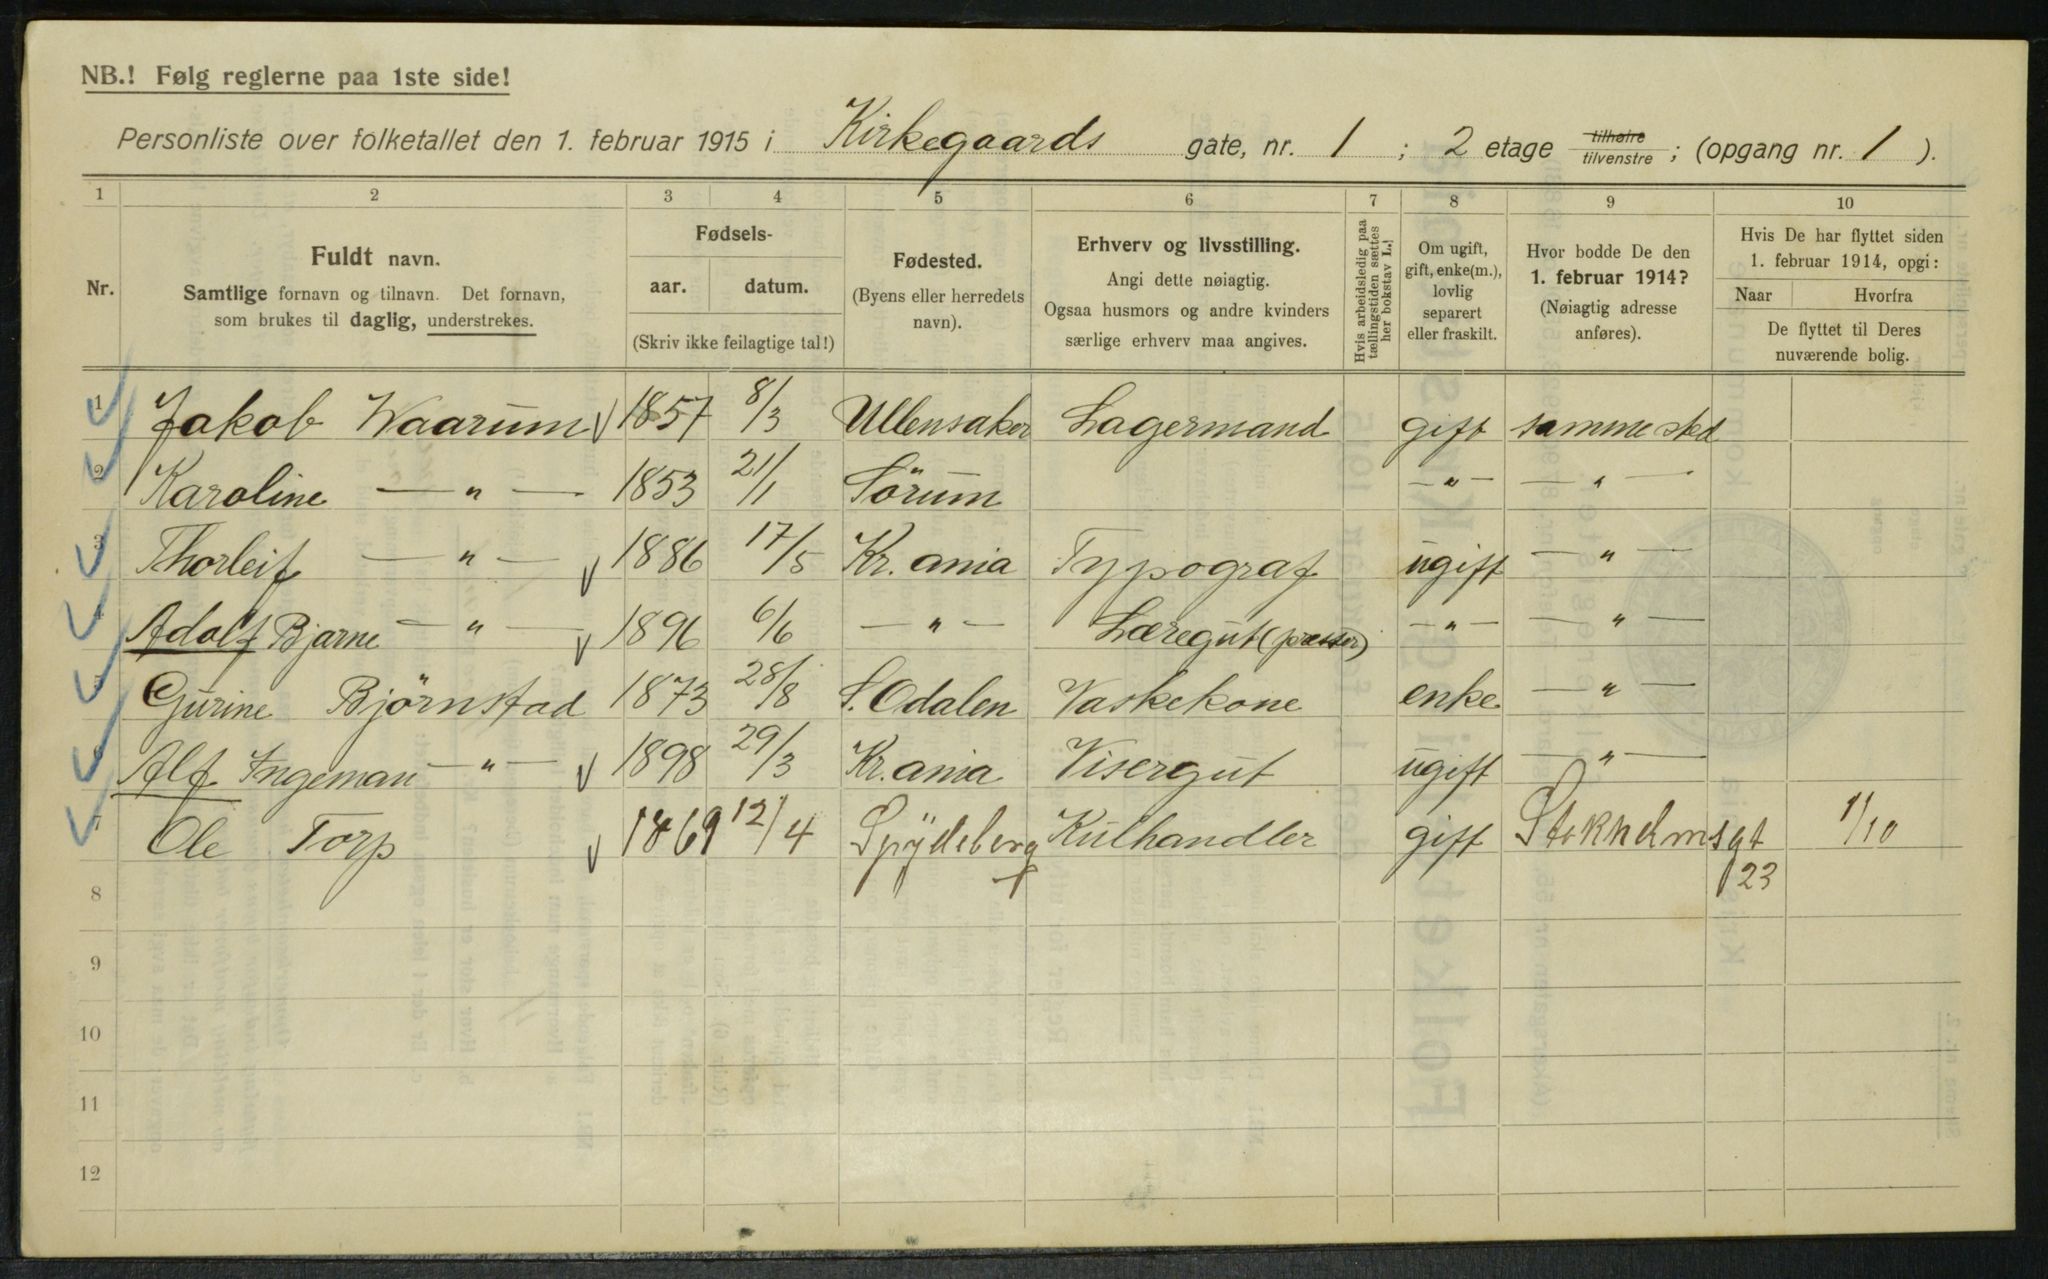 NB.! Følg reglerne paa 1ste side!
Personliste over folketallet den 1. februar 1915 i Kirkegaards gate, nr. 1 ; 2 etage tilhøire tilvenstre ; (opgang nr. 1 ).
1 2 3 4 5 6 7 8 9 10
Nr.
Fuldt navn.
Samtlige fornavn og tilnavn. Det fornavn,
som brukes til daglig, understrekes.
Fødsels-
aar. datum.
(Skriv ikke feilagtige tal!)
Fødested.
(Byens eller herredets
navn).
Erhverv og livsstilling.
Angi dette nøiagtig.
Ogsaa husmors og andre kvinders
særlige erhverv maa angives.
Hvis arbeidsledig paa
tællingstiden sættes
her bokstav L.!
Om ugift,
gift, enke(m.),
lovlig
separert
eller fraskilt.
Hvor bodde De den
1. februar 1914?
(Nøiagtig adresse
anføres).
Hvis De har flyttet siden
1. februar 1914, opgi:
Naar Hvorfra
De flyttet til Deres
nuværende bolig.
1 Jakob Waarum 1857 8/3 Ullensaker Lagermand gift samme sted
2 Karoline — " — 1853 21/1 Sörum — " — — " —
3 Thorleif — " — 1886 17/5 Kr. ania Typograf ugift — " —
4 Adolf Bjarne — " — 1896 6/6 — " — Læregut (presser) — " — — " —
5 Gurine Björnstad 1873 28/8 S. Odalen Vaskekone enke — " —
6 Alf Ingeman — " — 1898 29/3 Kr. ania Visergut ugift — " —
7 Ole Torp 1869 12/4 Spydeberg Kulhandler gift Stokholmsgt 1/10
23
8
9
10
11
12